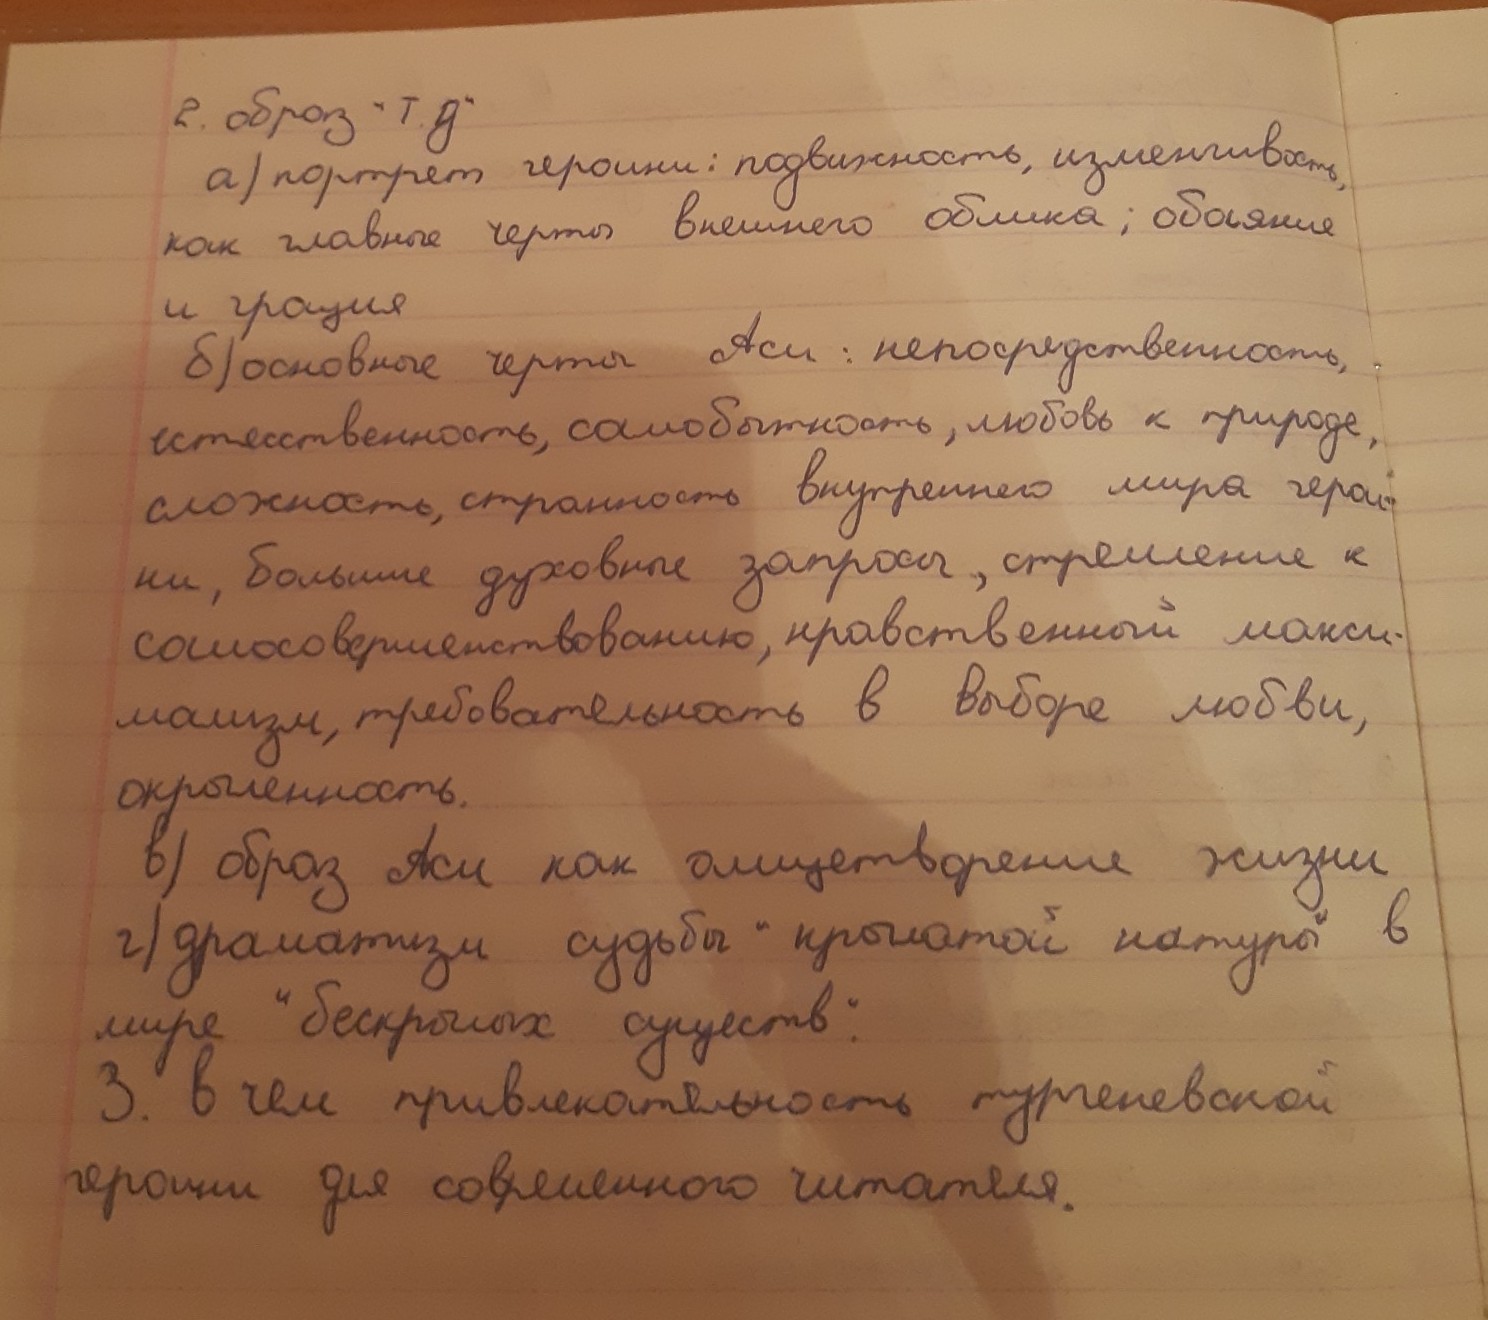 2. образ "Т.Д"
а) портрет героини: подвижность, изменчивость,
как главные черты внешнего облика; обаяние
и грация
б) основные черты Аси: непосредственность,
естесственность, самобытность, любовь к природе,
сложность, странность внутреннего мира герои-
ни, большие духовные запросы, стремление к
самосовершенствованию, нравственный макси-
мализм, требовательность в выборе любви,
окрыленность.
в) образ Аси как олицетворение жизни
г) драматизм судьбы "крылатой натуры" в
мире "бескрылых существ".
3. В чем привлекательность тургеневской
героини для современного читателя.